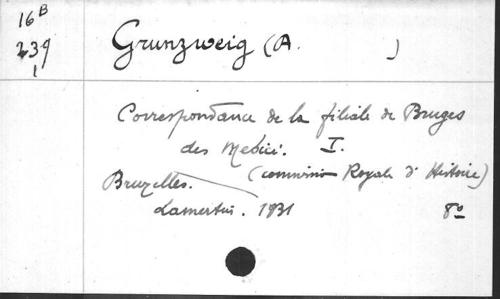 16B
239
1
Grunzweig (A. )
Correspondance de la filiale de Bruges
des Medici. I.
(Commission Royale d'Histoire)
Bruxelles.
Lamertin. 1931 8º